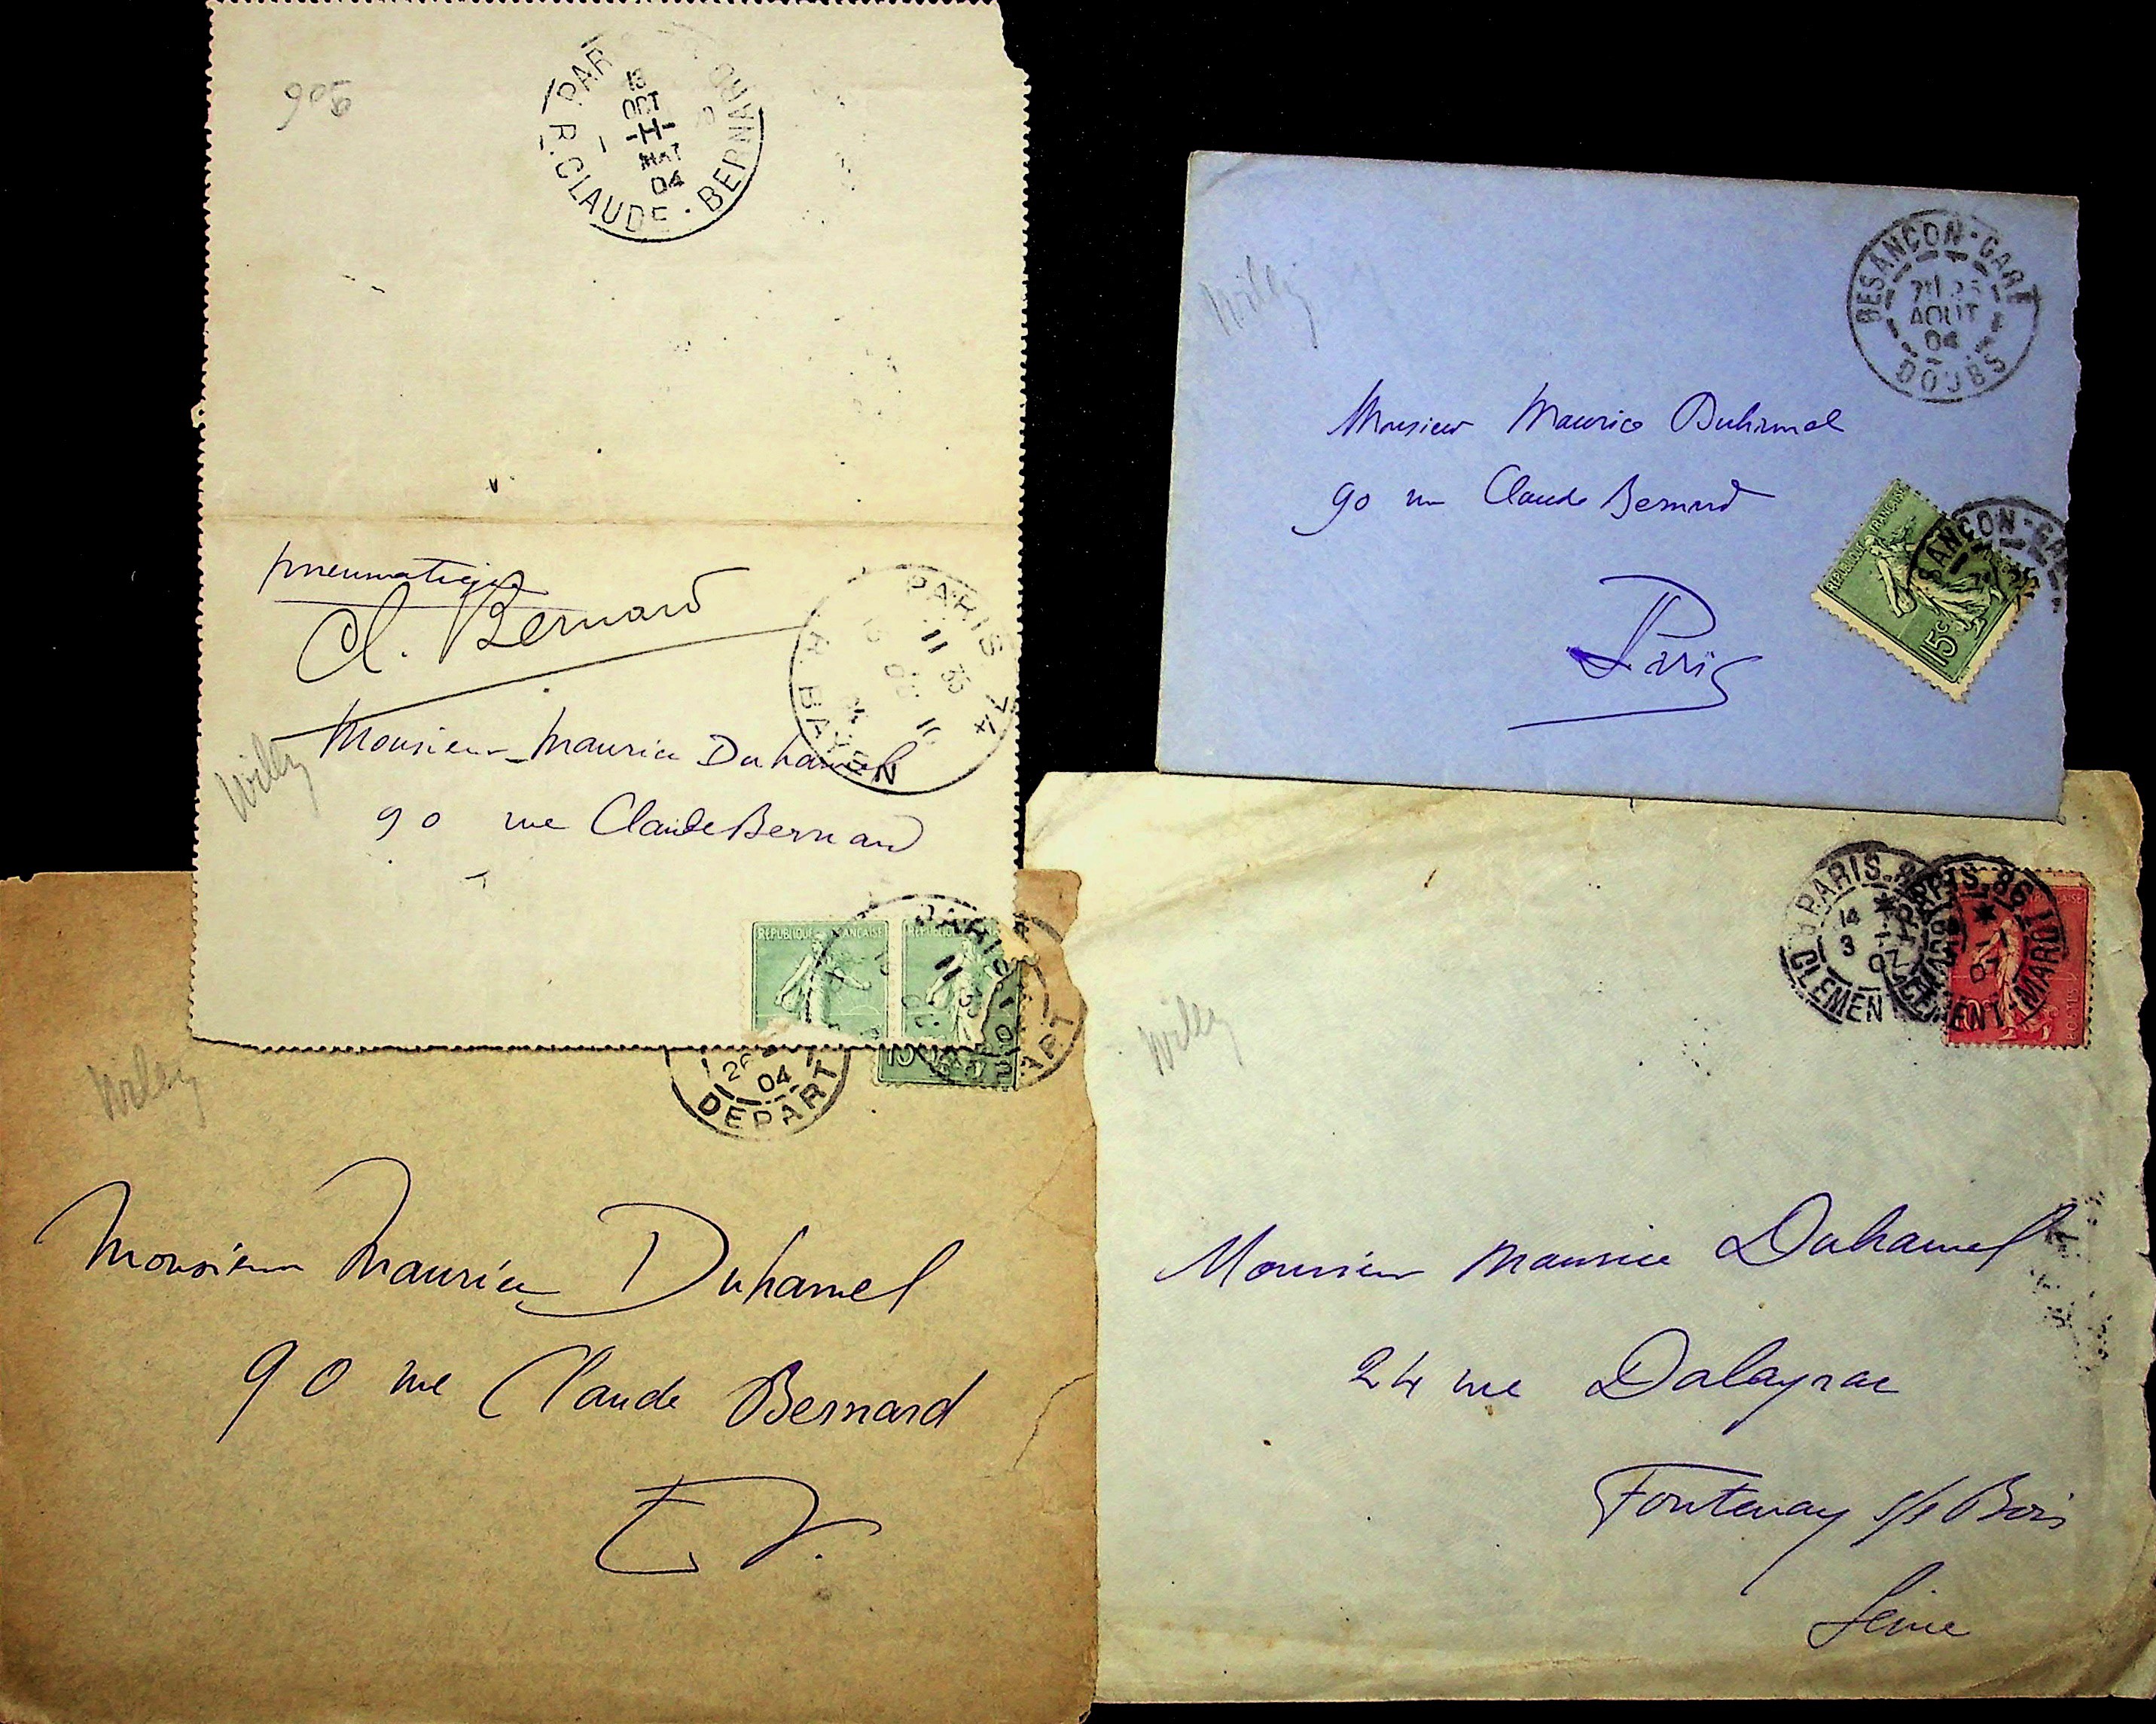 906
PAR
R. CLAUDE - BERNARD
OCT
MAT
04
pneumatique
Cl. Bernard
PARIS 74
11 35
R. BAYEN
Willy
Monsieur Maurice Duhamel
90 rue Claude Bernard
REPUBLIQUE FRANCAISE
REPUBLIQUE
PARIS
11
Willy
BESANÇON-GARE
AOUT
04
DOUBS
Monsieur Maurice Duhamel
90 rue Claude Bernard
Paris
REPUBLIQUE FRANCAISE
15c
BESANÇON-GARE
Willy
04
DEPART
15
Monsieur Maurice Duhamel
90 rue Claude Bernard
E. V.
Willy
PARIS
14
3
07
CLEMENT
PARIS 86
07
CLEMENT-MAROT
Monsieur Maurice Duhamel
24 rue Dalayrac
Fontenay s/s Bois
Seine